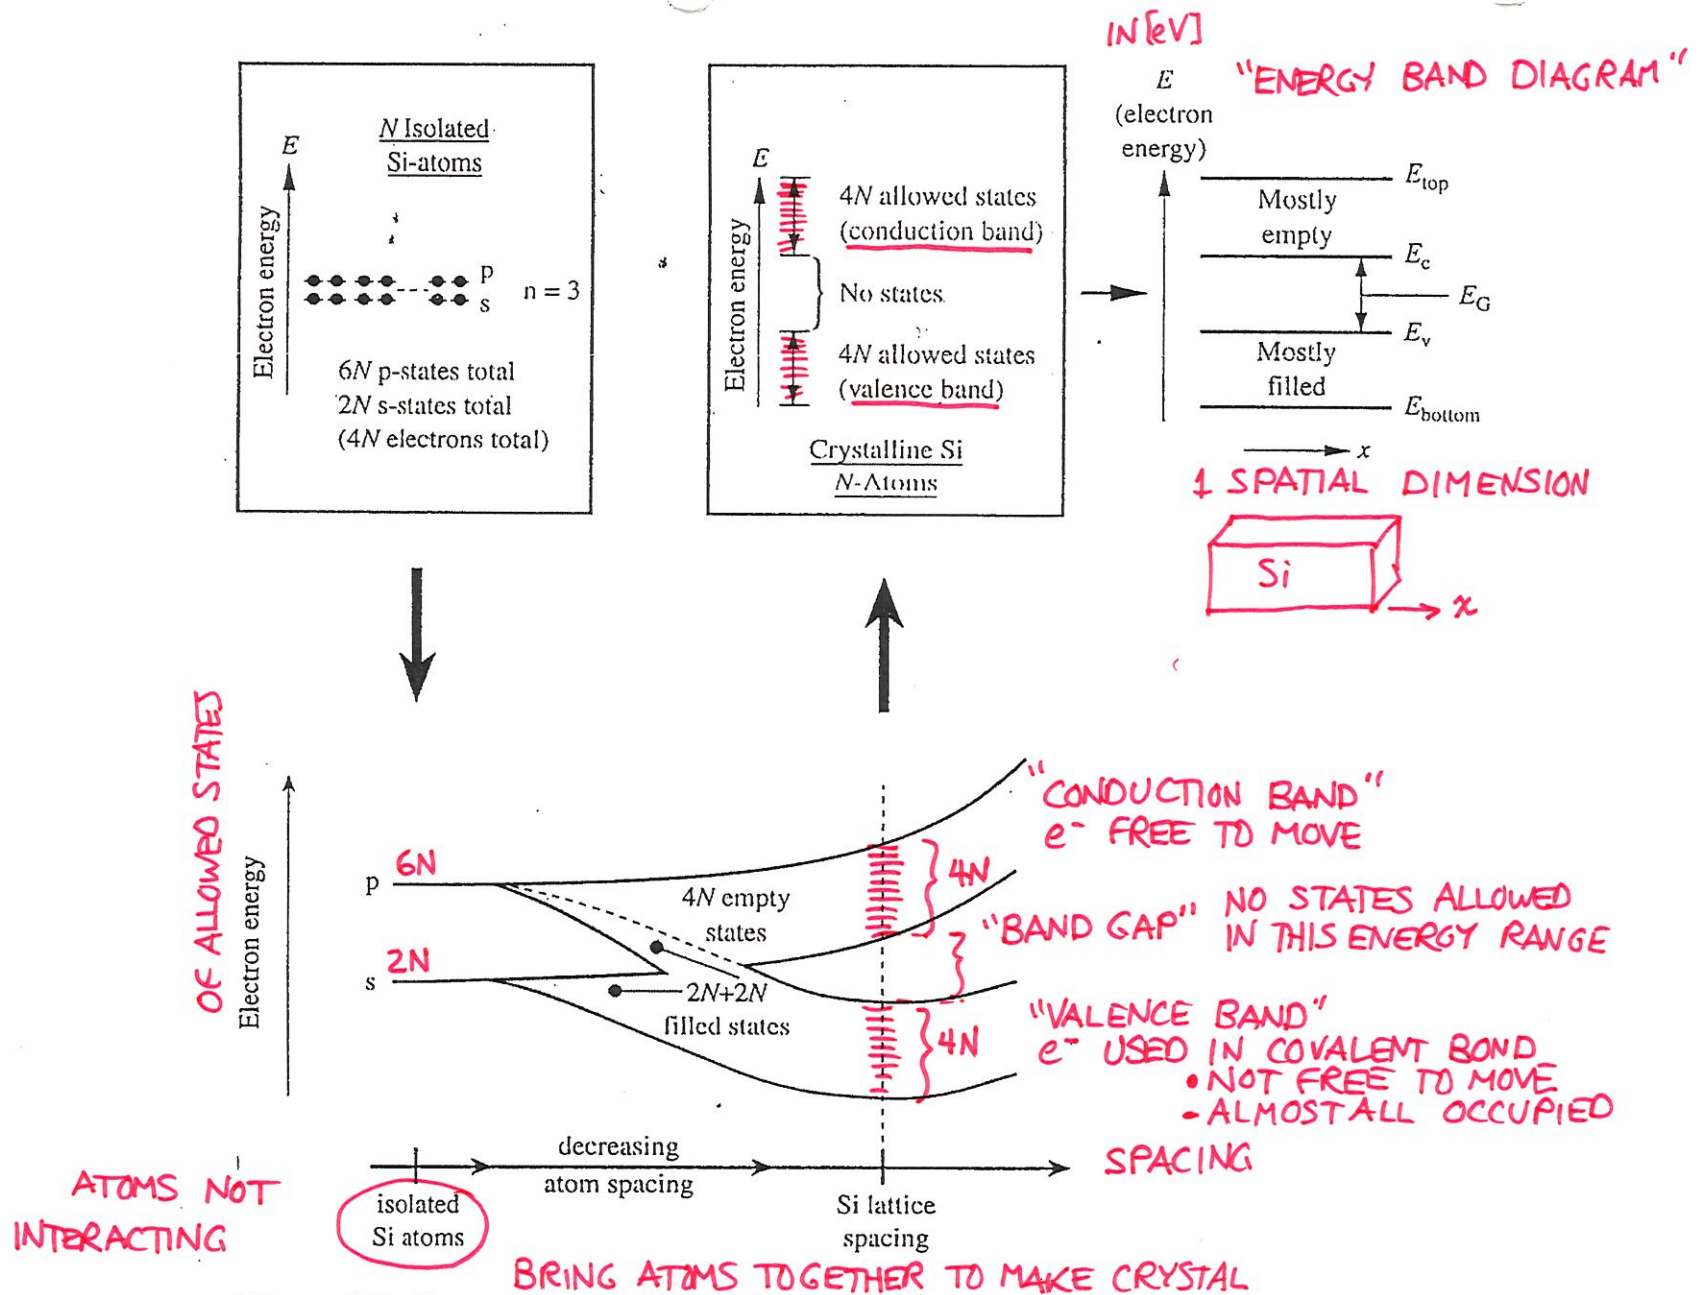 IN [eV]
"ENERGY BAND DIAGRAM"
N Isolated
Si-atoms
E
Electron energy
p
s
n = 3
6N p-states total
2N s-states total
(4N electrons total)
E
Electron energy
4N allowed states
(conduction band)
No states
4N allowed states
(valence band)
Crystalline Si
N-Atoms
E
(electron
energy)
E_top
Mostly
empty
E_c
E_G
E_v
Mostly
filled
E_bottom
x
1 SPATIAL DIMENSION
Si
x
OF ALLOWED STATES
Electron energy
p
6N
s
2N
4N empty
states
2N+2N
filled states
4N
4N
"CONDUCTION BAND"
e⁻ FREE TO MOVE
"BAND GAP"
NO STATES ALLOWED
IN THIS ENERGY RANGE
"VALENCE BAND"
e⁻ USED IN COVALENT BOND
• NOT FREE TO MOVE
- ALMOST ALL OCCUPIED
decreasing
atom spacing
SPACING
ATOMS NOT
INTERACTING
isolated
Si atoms
Si lattice
spacing
BRING ATOMS TOGETHER TO MAKE CRYSTAL